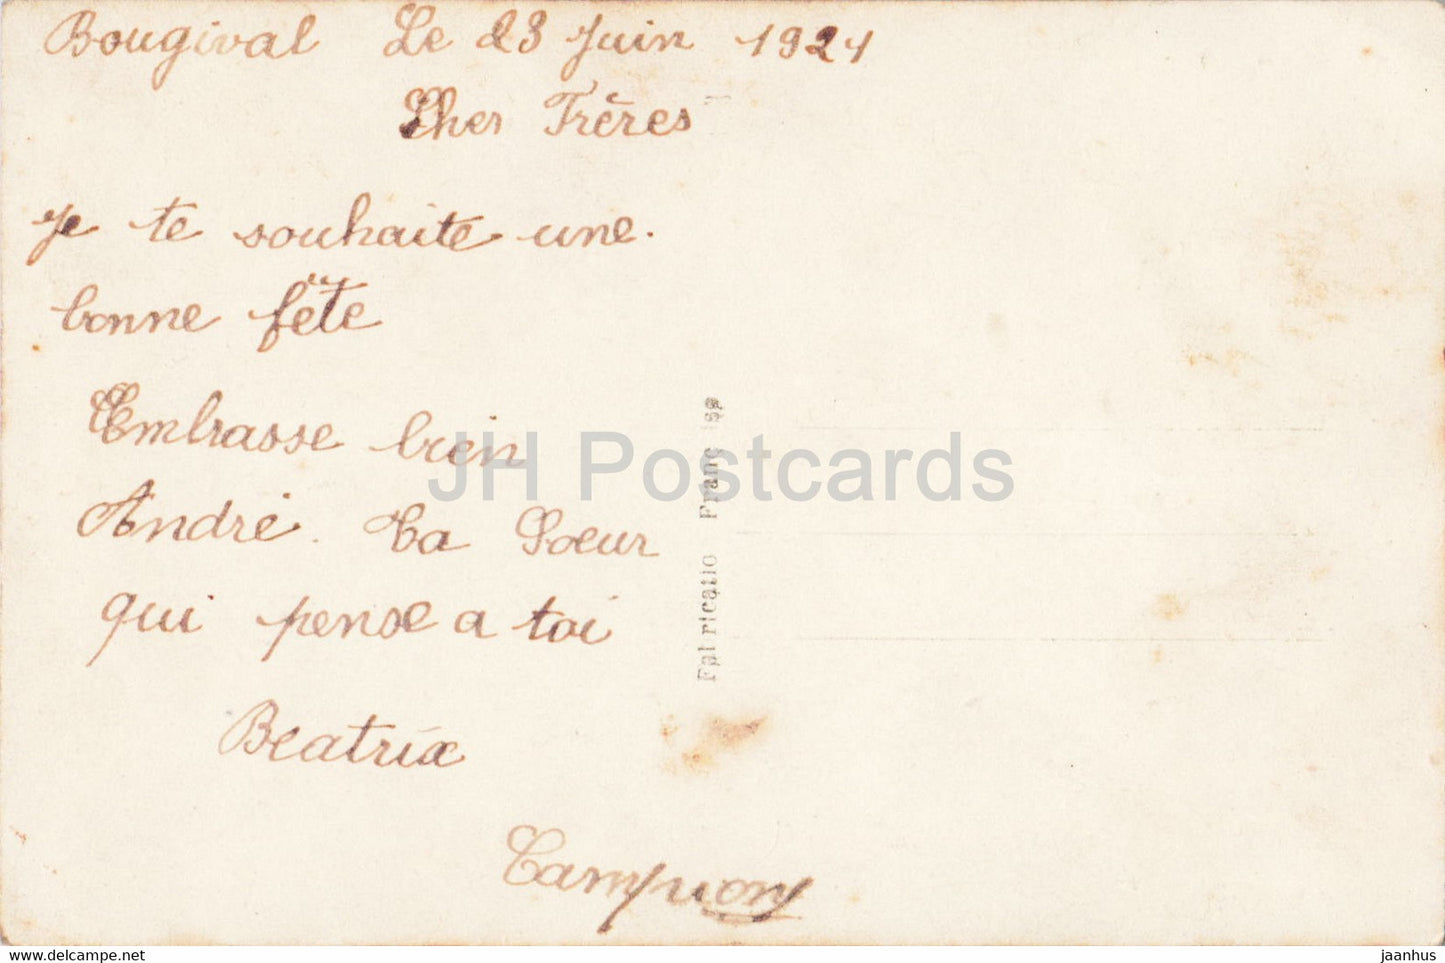 Bougival Le 23 Juin 1921
Cher Frères
Je te souhaite une.
bonne fête
Embrasse bien
André. Ta Soeur
qui pense a toi
Beatrix
Campion
Fabricatio Franç ise
JH Postcards
www.delcampe.net
jaanhus